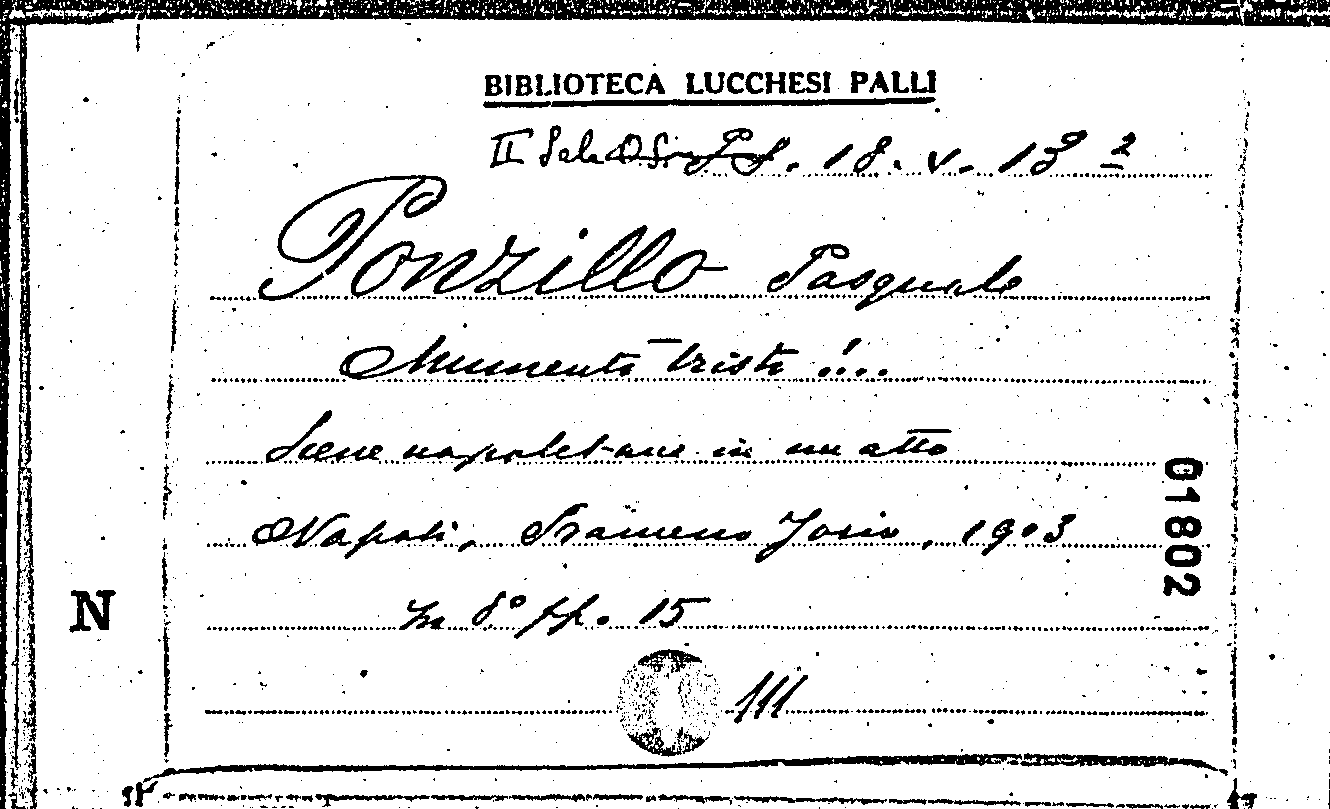 BIBLIOTECA LUCCHESI PALLI
II Sala 18. V. 13 2
Ponzillo Pasquale
Mumente triste!...
Scene napoletane in un atto
Napoli, Francesco Jovio, 1903
In 8° pp. 15
01802
N
111